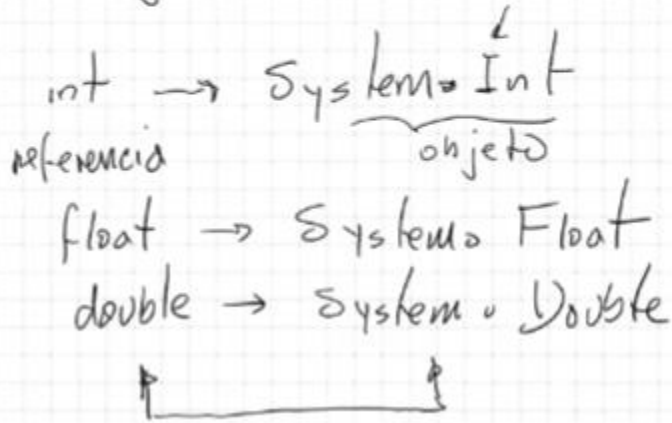 int → System.Int
referencia objeto
float → System. Float
double → System. Double